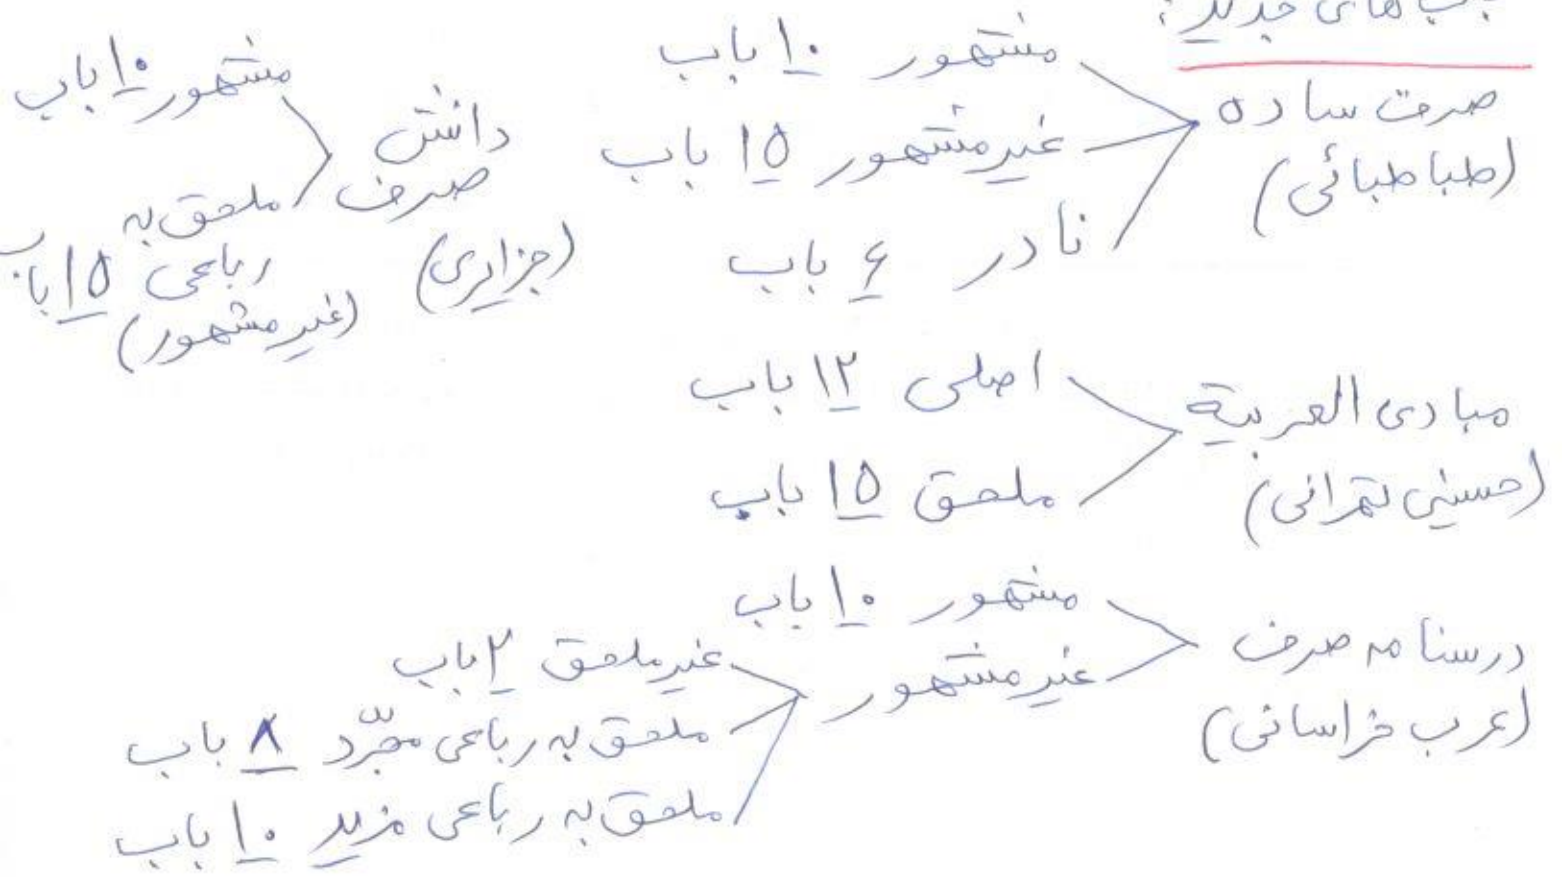 های جدید:
صرف ساده
(طباطبائی)
مشهور ۱۰ باب
غیرمشهور ۱۵ باب
نادر ۶ باب
دانش
صرف
(جزایری)
مشهور ۱۰ باب
ملحق به
رباعی ۱۵ باب
(غیرمشهور)
مبادی العربیة
(حسینی تهرانی)
اصلی ۱۲ باب
ملحق ۱۵ باب
درسنامه صرف
(عرب خراسانی)
مشهور ۱۰ باب
غیرمشهور
غیرملحق ۲ باب
ملحق به رباعی مجرّد ۸ باب
ملحق به رباعی مزید ۱۰ باب